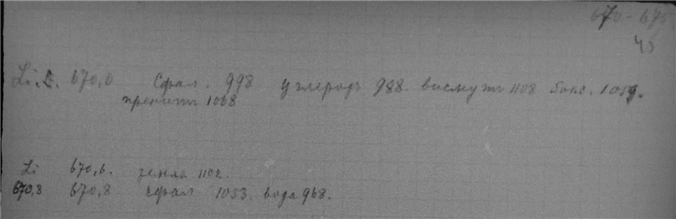 670-675
45
Li. 670,0 Сфал. 998 углеродъ 988 висмутъ 1108 бокс. 1059.
пренитъ 1068
Li 670,6. земля 1102.
670,8 670,8 сфал. 1053. вода 968.